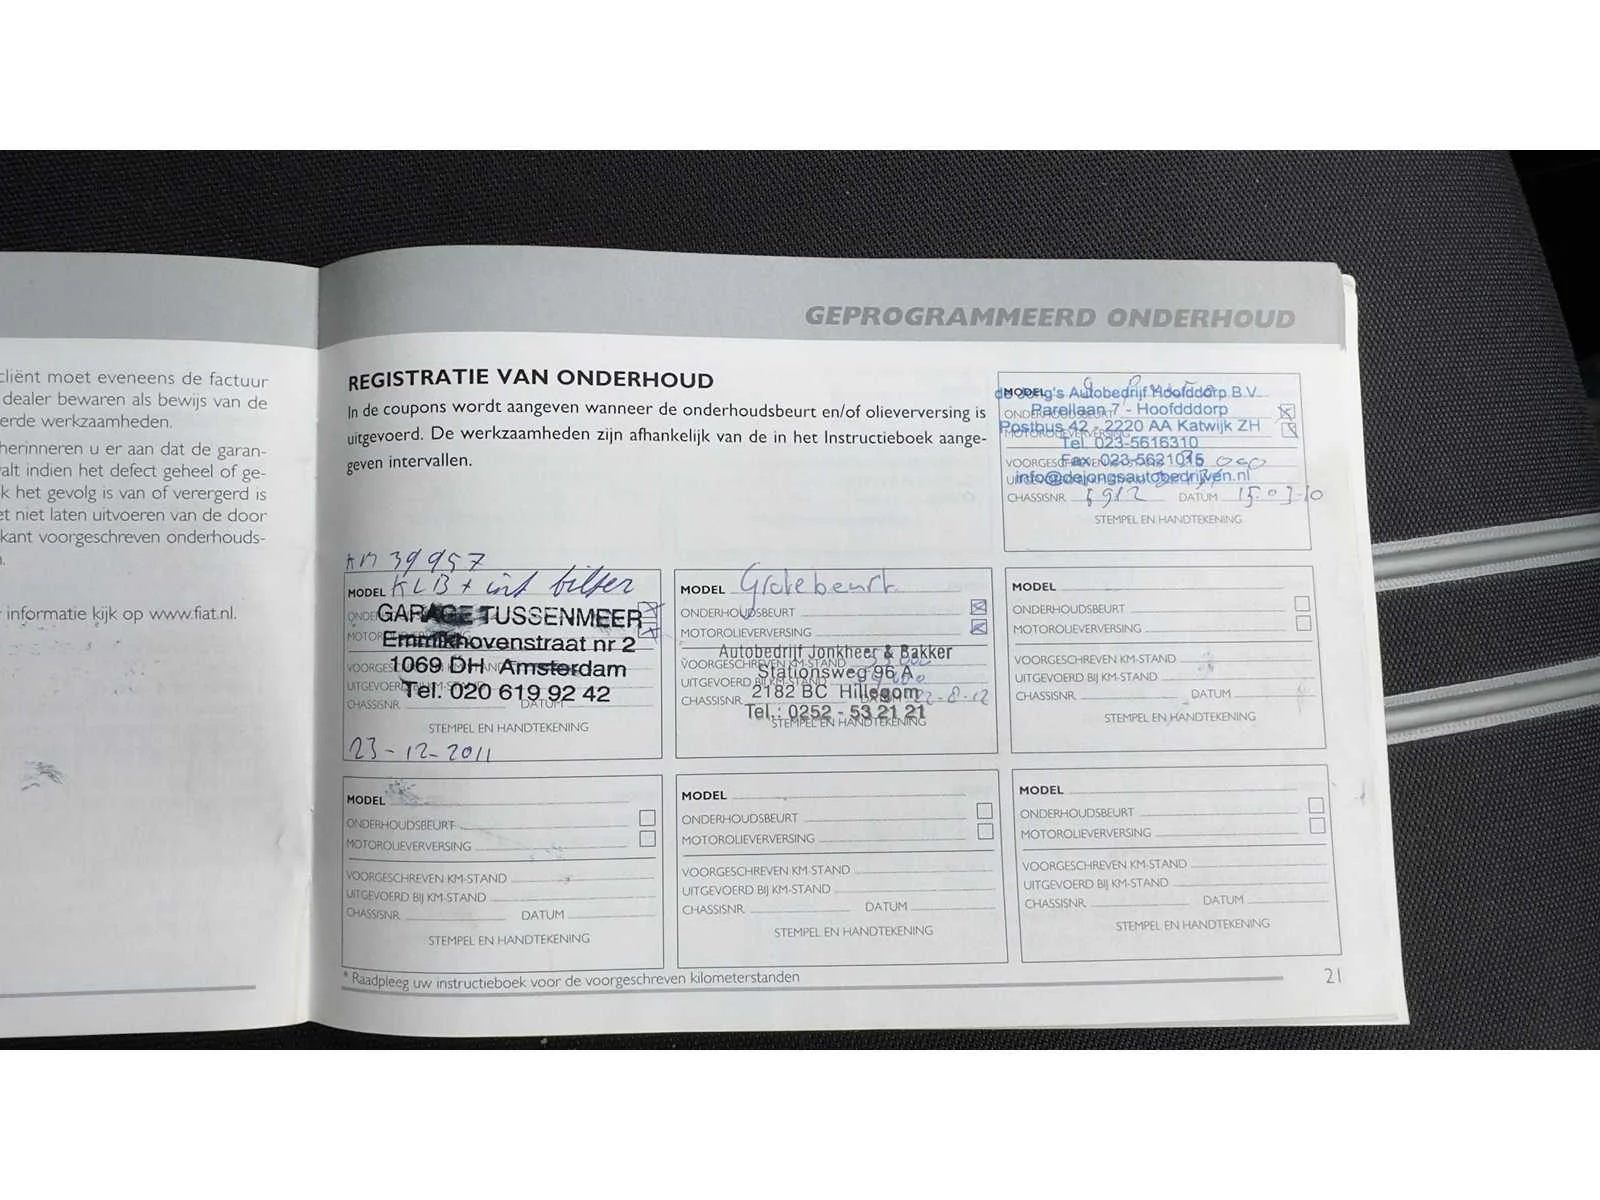 cliënt moet eveneens de factuur
dealer bewaren als bewijs van de
erde werkzaamheden.
herinneren u er aan dat de garan-
valt indien het defect geheel of ge-
k het gevolg is van of verergerd is
et niet laten uitvoeren van de door
kant voorgeschreven onderhouds-
informatie kijk op www.fiat.nl.
GEPROGRAMMEERD ONDERHOUD
REGISTRATIE VAN ONDERHOUD
In de coupons wordt aangeven wanneer de onderhoudsbeurt en/of olieverversing is
uitgevoerd. De werkzaamheden zijn afhankelijk van de in het Instructieboek aange-
geven intervallen.
MODEL
de Jong's Autobedrijf Hoofddorp B.V.
Parellaan 7 - Hoofdddorp
Postbus 42 - 2220 AA Katwijk ZH
Tel. 023-5616310
Fax. 023-5621015
info@dejongsautobedrijven.nl
CHASSISNR. 5912 DATUM 15-03-10
STEMPEL EN HANDTEKENING
KM 39957
MODEL KLB + int filter
GARAGE TUSSENMEER
Emmikhovenstraat nr 2
1069 DH Amsterdam
Tel. 020 619 92 42
CHASSISNR. DATUM
STEMPEL EN HANDTEKENING
23-12-2011
MODEL Grote beurt
ONDERHOUDSBEURT
MOTOROLIEVERVERSING
Autobedrijf Jonkheer & Bakker
VOORGESCHREVEN KM-STAND
Stationsweg 96 A
UITGEVOERD BIJ KM-STAND
2182 BC Hillegom
CHASSISNR. 22-8-12
Tel.: 0252 - 53 21 21
STEMPEL EN HANDTEKENING
MODEL
ONDERHOUDSBEURT
MOTOROLIEVERVERSING
VOORGESCHREVEN KM-STAND
UITGEVOERD BIJ KM-STAND
CHASSISNR. DATUM
STEMPEL EN HANDTEKENING
MODEL
ONDERHOUDSBEURT
MOTOROLIEVERVERSING
VOORGESCHREVEN KM-STAND
UITGEVOERD BIJ KM-STAND
CHASSISNR. DATUM
STEMPEL EN HANDTEKENING
MODEL
ONDERHOUDSBEURT
MOTOROLIEVERVERSING
VOORGESCHREVEN KM-STAND
UITGEVOERD BIJ KM-STAND
CHASSISNR. DATUM
STEMPEL EN HANDTEKENING
MODEL
ONDERHOUDSBEURT
MOTOROLIEVERVERSING
VOORGESCHREVEN KM-STAND
UITGEVOERD BIJ KM-STAND
CHASSISNR. DATUM
STEMPEL EN HANDTEKENING
* Raadpleeg uw instructieboek voor de voorgeschreven kilometerstanden
21